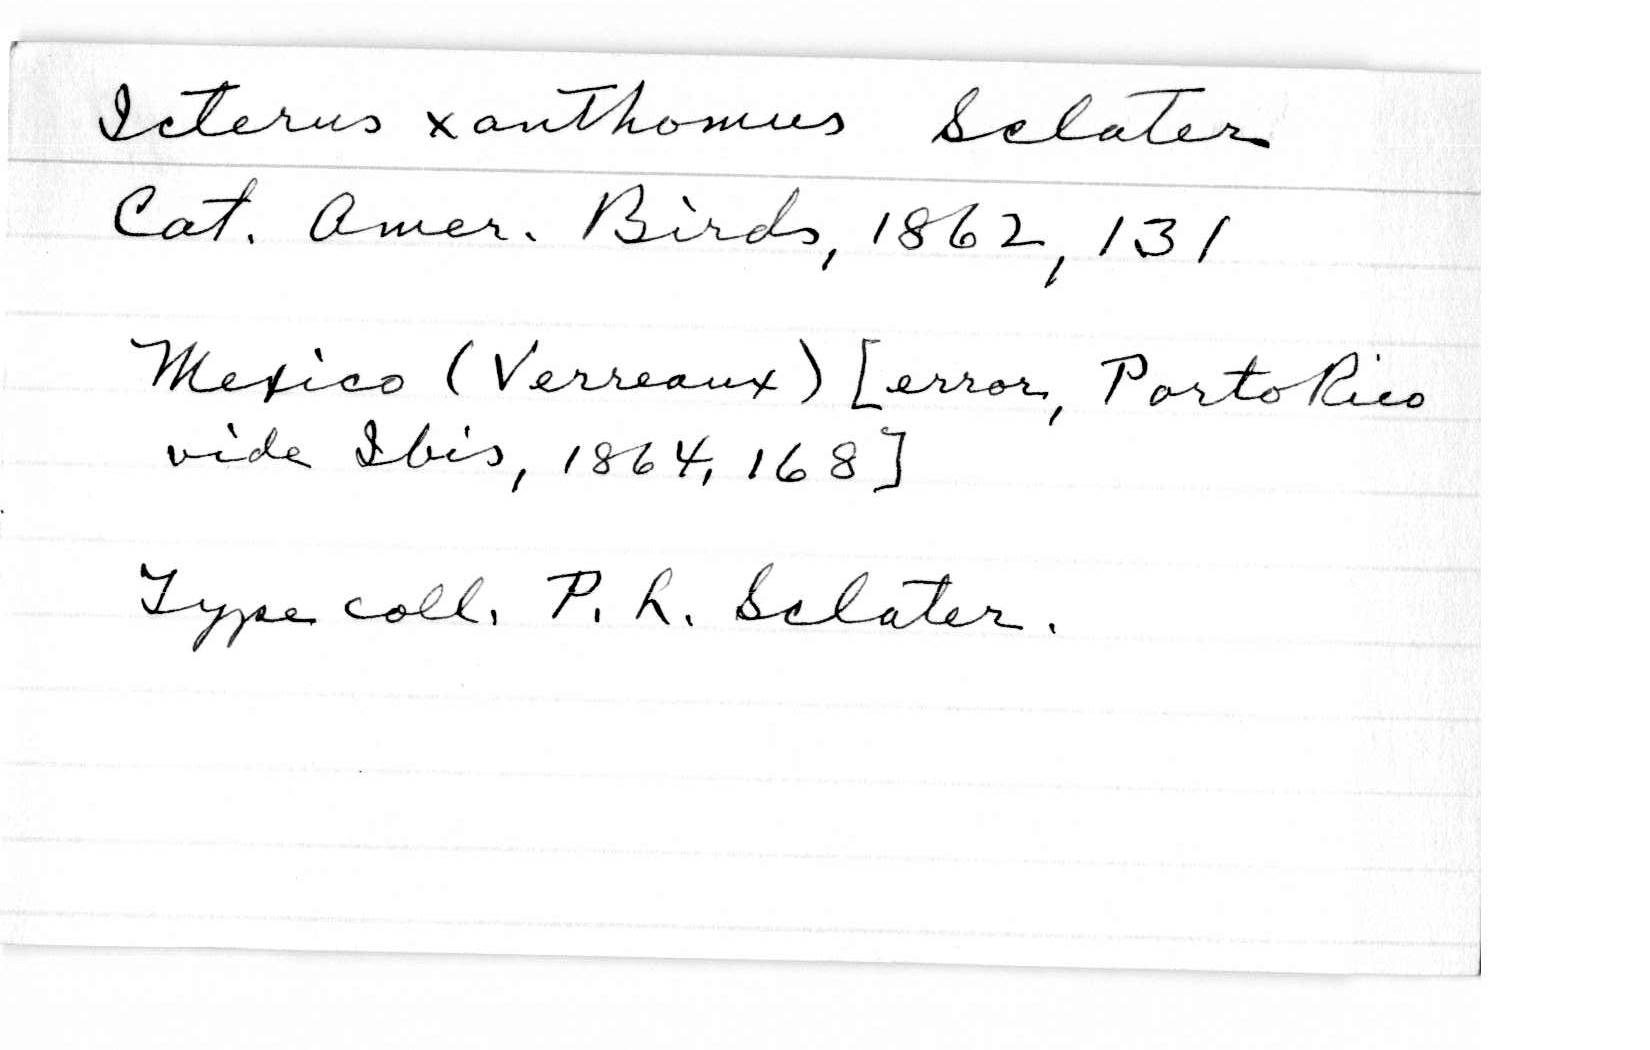 Icterus xanthomus Sclater
Cat. Amer. Birds, 1862, 131
Mexico (Verreaux) [error, Porto Rico
vide Ibis, 1864, 168]
Type coll. P. L. Sclater.